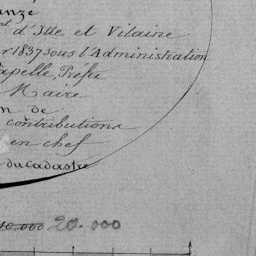 anze
d'Ille et Vilaine
r 1837 sous l'Administration
apelle, Préfet
Maire
n de
contributions
en chef
du cadastre
10.000 20.000